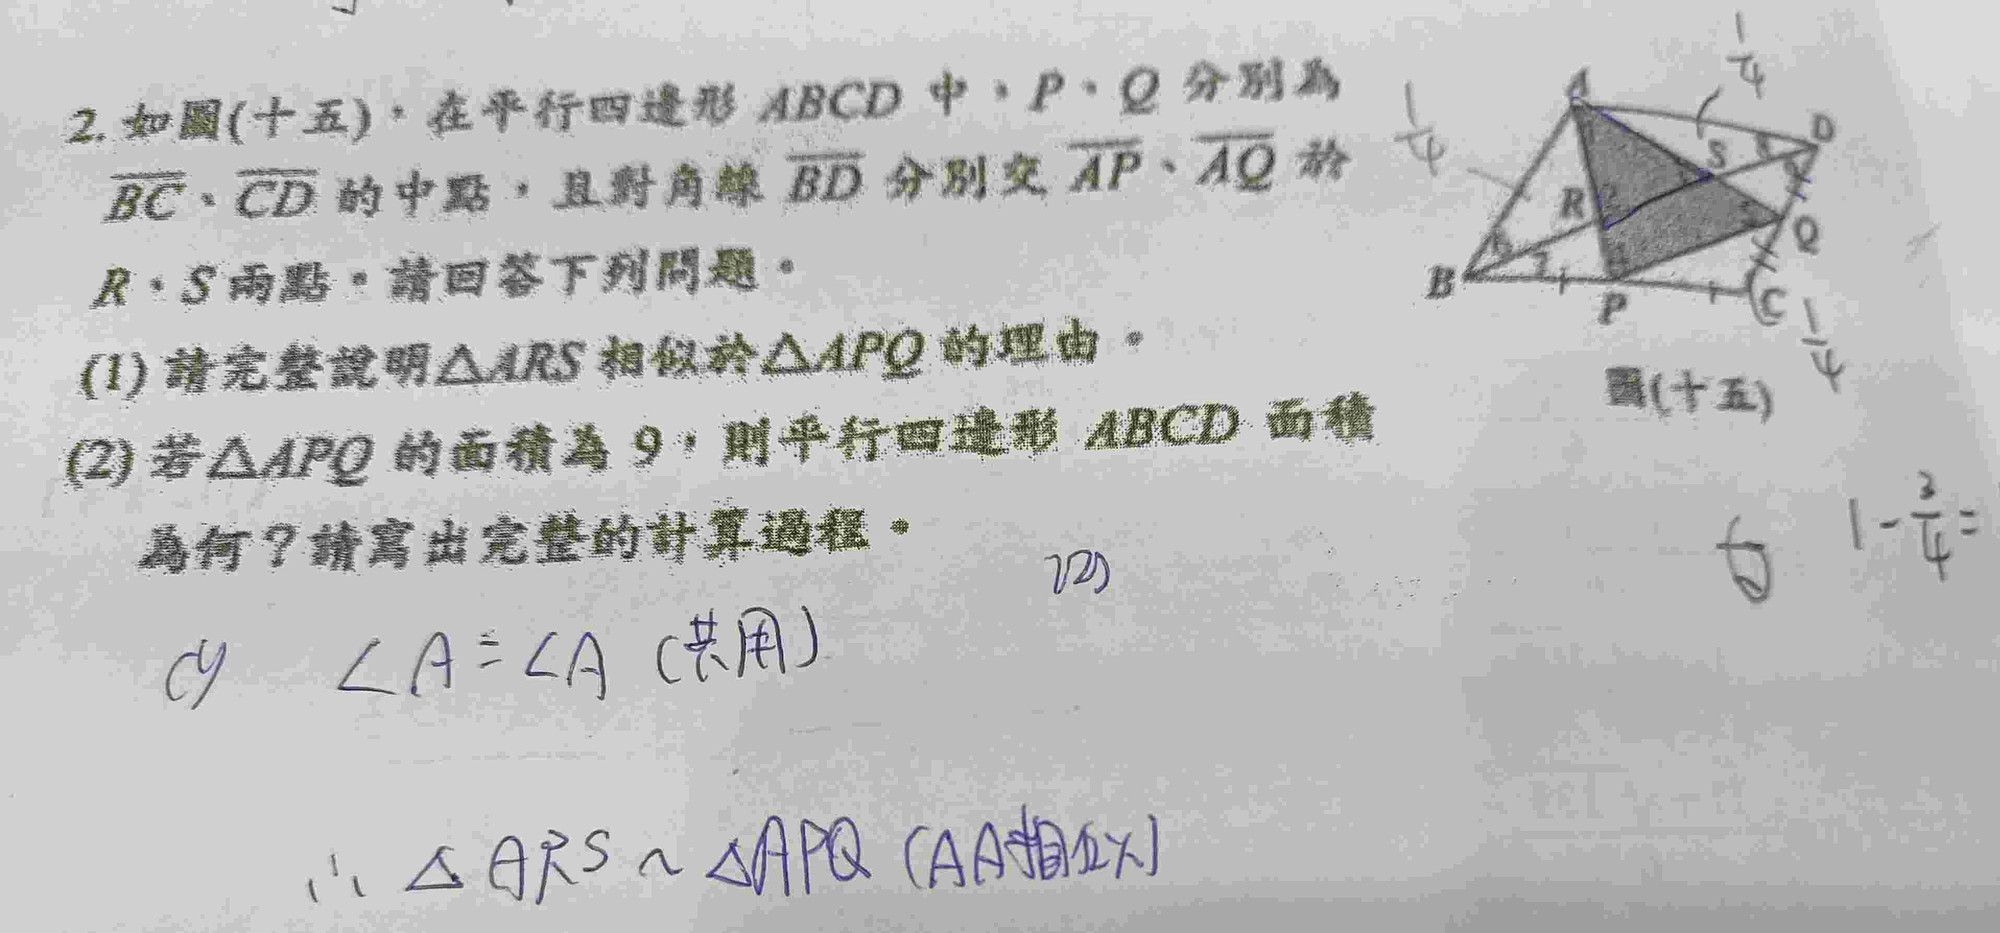 2. 如圖(十五)，在平行四邊形 ABCD 中，P、Q 分別為
BC、CD 的中點，且對角線 BD 分別交 AP、AQ 於
R、S 兩點。請回答下列問題。
(1) 請完整說明△ARS 相似於△APQ 的理由。
(2) 若△APQ 的面積為 9，則平行四邊形 ABCD 面積
為何？請寫出完整的計算過程。
A
D
S
R
Q
B
P
C
1/4
1/4
1/4
圖(十五)
1 - 3/4 =
(2)
(1) ∠A = ∠A (共用)
∴ △ARS ~ △APQ (AA相似)